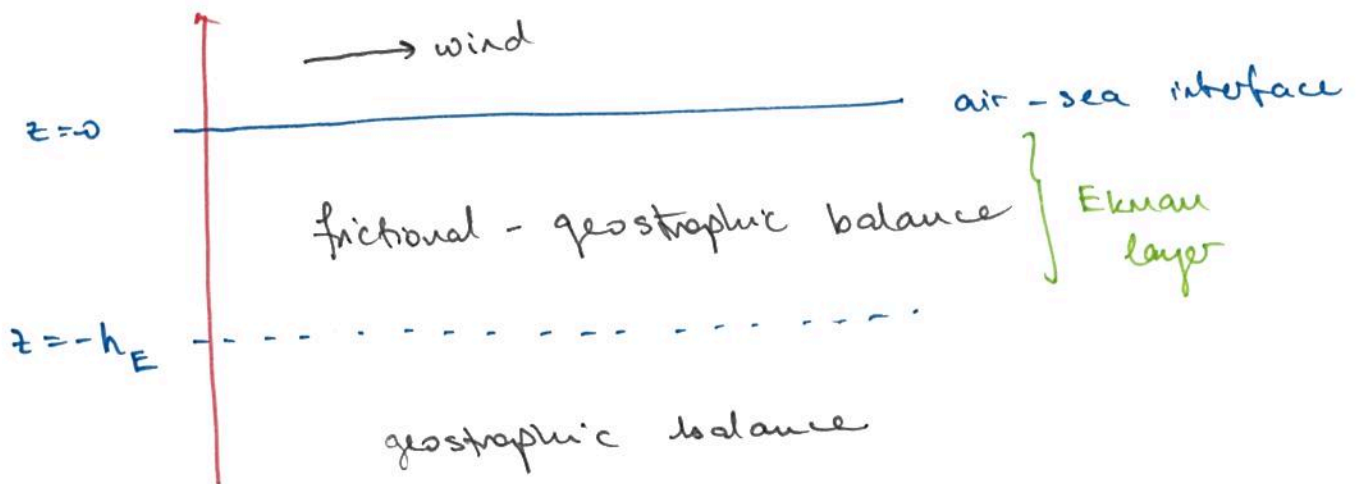 → wind
air-sea interface
z=0
frictional - geostrophic balance
Ekman
layer
z=-h_E
geostrophic balance